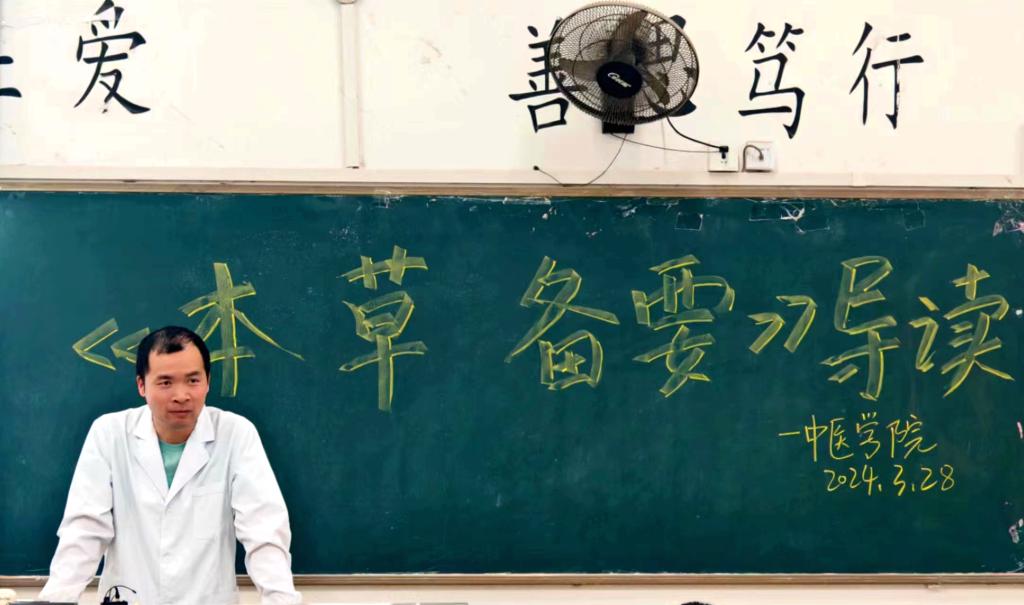 爱 善 笃行
《本草备要》导读
一中医学院
2024.3.28